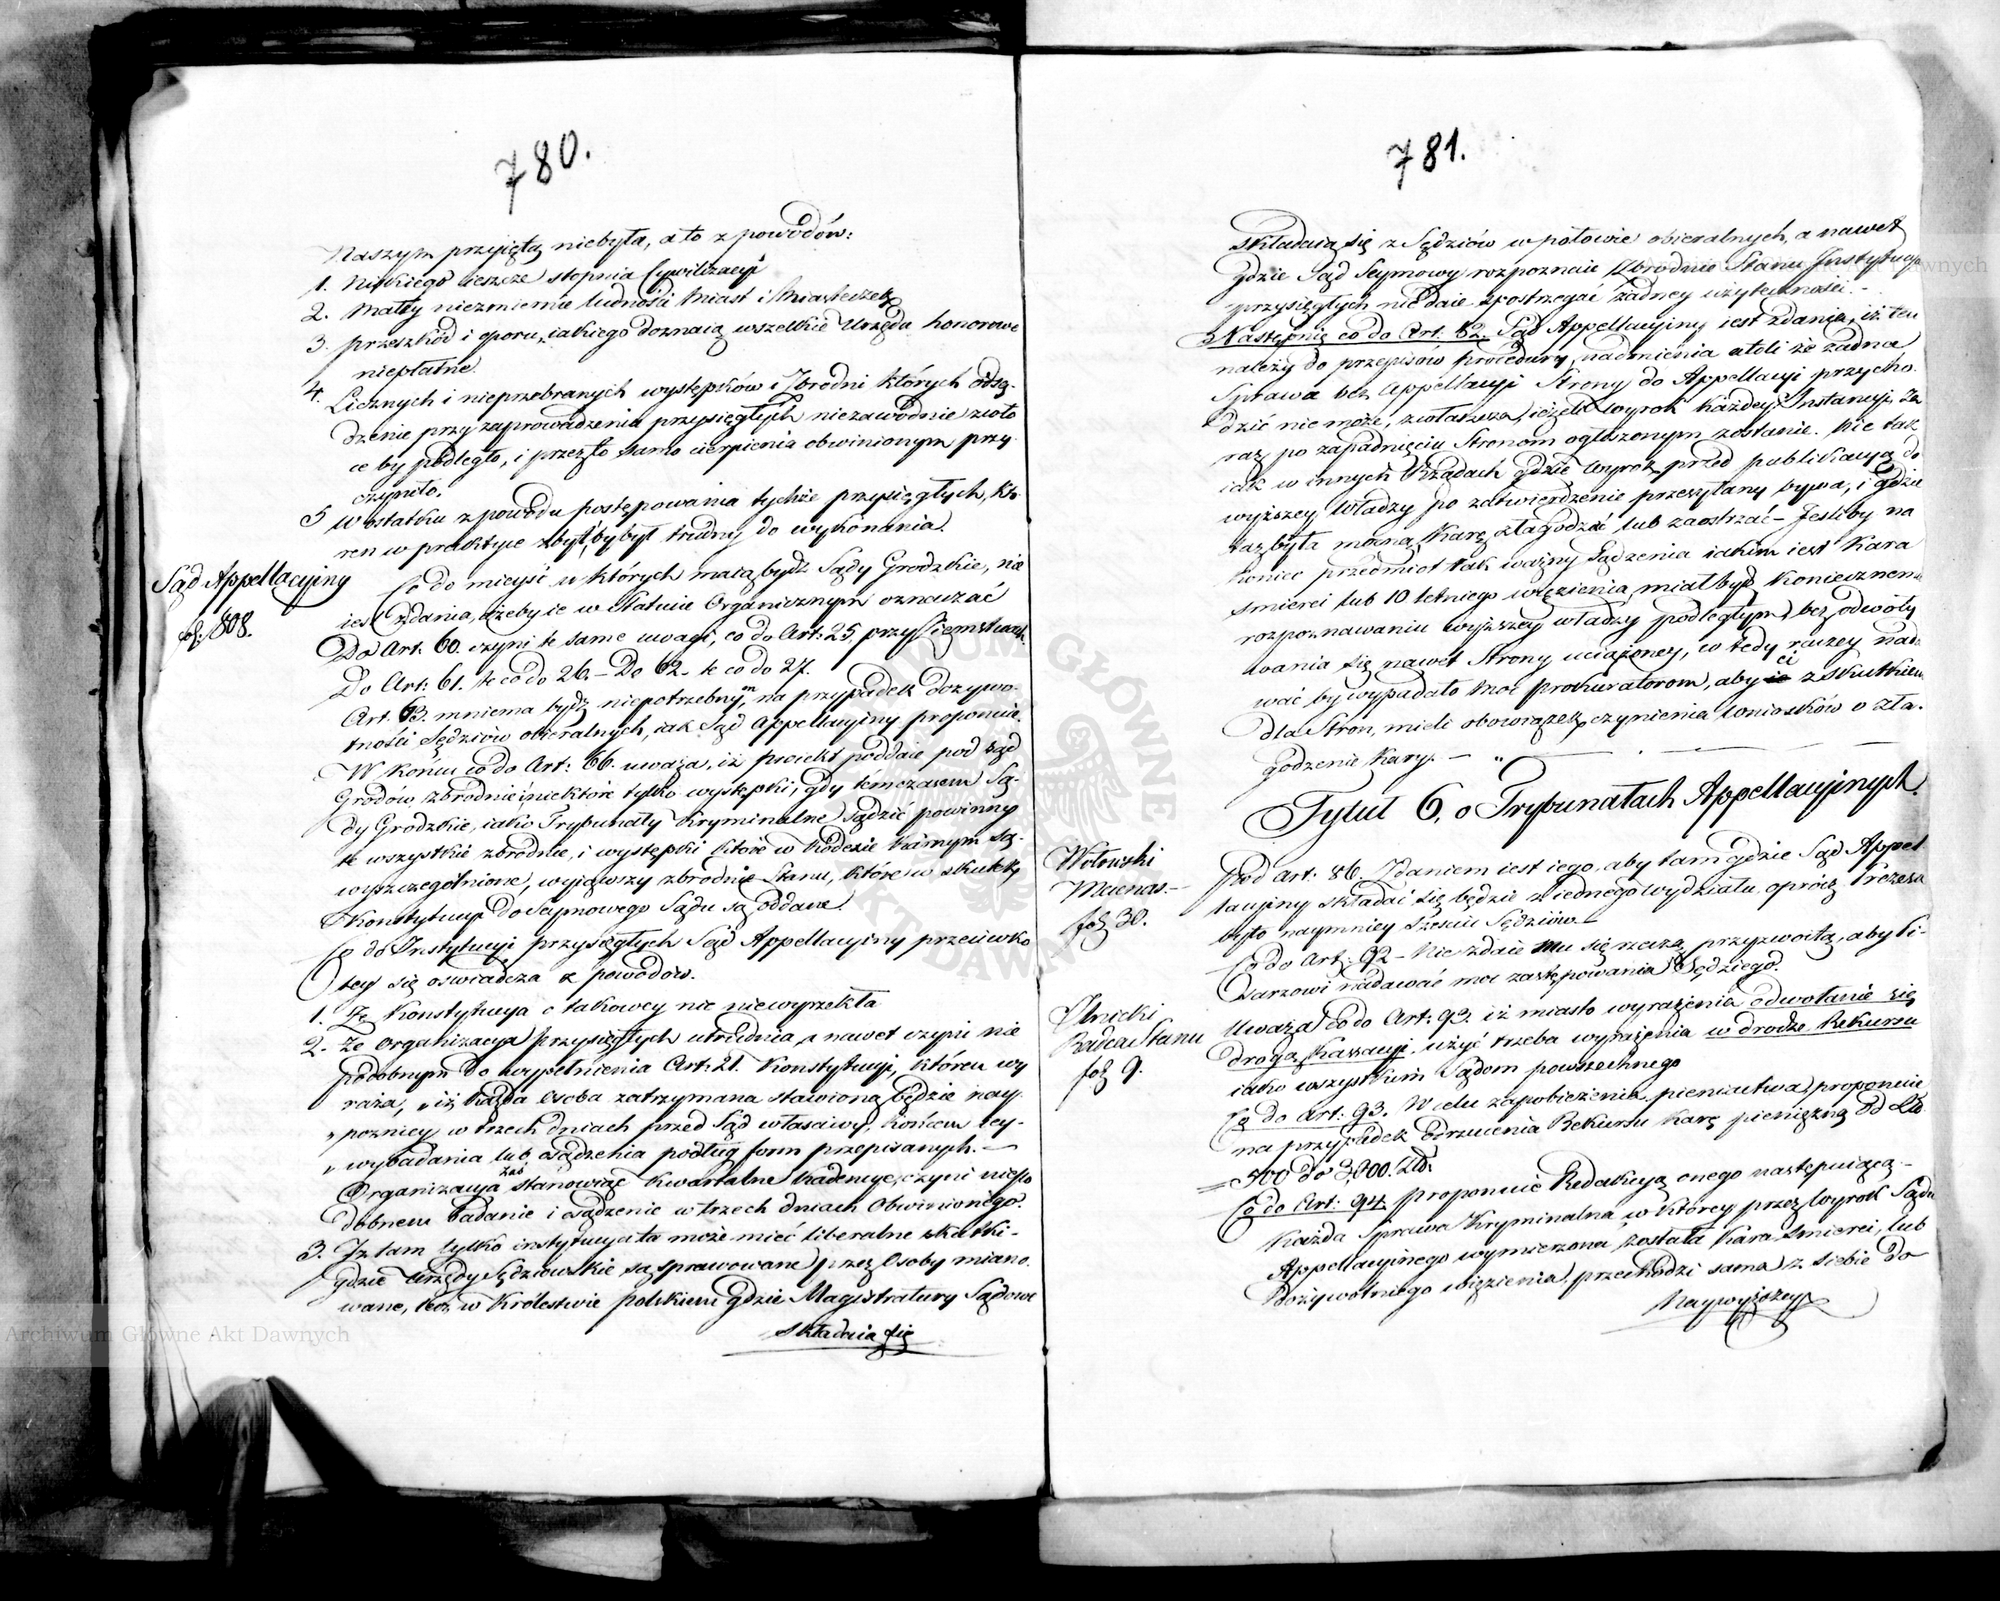 780.
Naszym przyiętą niebyła, a to z powodów:
1. Nizkiego ieszcze stopnia Cywilizacyi
2. Małey niezmiernie ludności Miast i Miasteczek
3. przeszkód i oporu, iakiego doznaią wszelkie Urzęda honorowe
niepłatne.
4. Licznych i nieprzebranych występków i Zbrodni których osą-
dzenie przy zaprowadzeniu przysięgłych niezawodnie zwło
ce by podległo, i przez to samo cierpienia obwinionym przy-
czyniło.
5 W ostatku z powodu postępowania tychże przysięgłych, któ-
ren w praktyce zbyt, byłbyt trudny do wykonania.
Sąd Appellacyiny
fol: 808.
Co do mieysc w których maią bydź Sądy Grodzkie, nie
iest zdania, ażeby ie w Statucie Organicznym oznaczać
Do Art. 60. czyni te same uwagi, co do Art: 25. przy Ziemstwach.
Do Art: 61. te co do 26. – Do 62. te co do 27.
Art. 63. mniema bydź niepotrzebnym, na przypadek dożywo-
tności Sędziów obieralnych, iak Sąd Appellacyiny proponuie.
W końcu co do Art: 66. uważa, iż proiekt poddaie pod sąd
Grodów zbrodnie i niektóre tylko występki, gdy tymczasem Są-
dy Grodzkie, iako Trybunały Kryminalne sądzić powinny
te wszystkie zbrodnie, i występki które w Kodexie karnym są
wyszczególnione, wyiąwszy zbrodnie Stanu, które w skutek
Konstytucyi do Seymowego Sądu są oddane.
Co do Instytucyi przysięgłych Sąd Appellacyiny przeciwko
tey się oświadcza z powodów.
1. Że Konstytucya o takowey nic niewyrzekła
2. Że organizacya przysięgłych utrudnia, a nawet czyni nie
podobnym do wypełnienia Art: 21. Konstytucyi, któren wy
raża, „iż każda osoba zatrzymana stawioną będzie nay-
„pozniey w trzech dniach przed Sąd właściwy, końcem iey-
„wybadania lub osądzenia podług form przepisanych. –
Organizacya zaś stanowiąc kwartalne kadencye, czyni niepo
dobnem badanie i sądzenie w trzech dniach obwinionego.
3. Iż tam tylko instytucya ta może mieć liberalne skutki-
gdzie Urzędy Sędziowskie są sprawowane przez Osoby miano-
wane, lecz w Królestwie polskiem gdzie Magistratury Sądowe
składaią się
781.
składaią się z Sędziów w połowie obieralnych, a nawet
gdzie Sąd Seymowy rozpoznaie Zbrodnie Stanu Instytucya
przysięgłych nie daie spostrzegać żadney użyteczności. –
Następnie co do Art. 82. Sąd Appellacyiny iest zdania, iż ten
należy do przepisów procedury, nadmienia atoli że żadna
Sprawa bez Appellacyi Strony do Appellacyi przycho-
dzić nie może, zwłaszcza, ieżeli wyrok każdey Instancyi za
raz po zapadnięciu Stronom ogłoszonym zostanie. Nie tak
iak w innych Rządach gdzie wyrok przed publikacyą do
wyższey Władzy po zatwierdzenie przesyłany bywa, i gdzie
taż była mocna Karę złagodzić lub zaostrzać – Jeśliby na
koniec przedmiot tak ważny Sądzenia iakim iest Kara
smierci lub 10 letniego więzienia, miał bydź koniecznem
rozpoznawaniu wyższey władzy podległym, bez odwoły
wania się nawet Strony uciążoney, w tedy raczey nada-
wać by wypadało moc prokuratorom, aby ci z skutkiem
dla Stron, mieli obowiązek czynienia wniosków o zła-
godzenie Kary. –
Tytuł 6. o Trybunałach Appellacyinych.
Wołowski
Mecenas –
fol. 30.
Pod Art: 86. Zdaniem iest iego, aby tam gdzie Sąd Appel
lacyiny składać się będzie z iednego wydziału oprócz Prezesa
było naymniey sześciu Sędziów. –
Co do Art: 92 – Nie zdaie mu się rzeczą przyzwoitą, aby Pi-
sarzowi nadawać moc zastępowania Sędziego.
Ilnicki
Radca Stanu
fol. 9.
Uważa co do Art: 93. iż miasto wyrażenia odwołanie się
drogą Kassacyi, użyć trzeba wyrażenia w drodze Rekursu
iako wszystkim Sądom powszechnego
Co do Art: 93. W celu zapobieżenia pieniactwa, proponuie
na przypadek odrzucenia Rekursu Karę pieniężną od Zło.
500 do 3,000. Zło.
Co do Art: 94. proponuie Redakcyą onego następuiącą –
Każda Sprawa Kryminalna w którey przez wyrok Sądu
Appellacyinego wymierzona została kara smierci, lub
Dożywotniego więzienia, przechodzi sama z siebie do
Naywyższey